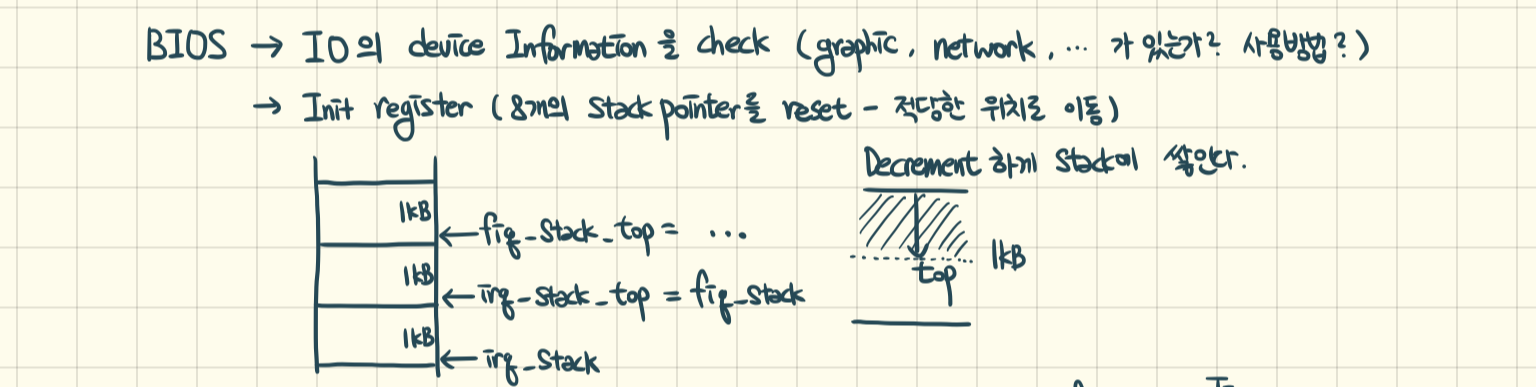 BIOS → IO의 device Information을 check (graphic, network, … 가 있는가? 사용방법?)
→ Init register (8개의 stack pointer를 reset - 적당한 위치로 이동)
Decrement 하게 stack에 쌓인다.
1kB
←fiq_stack_top = …
1kB
←irq_stack_top = fiq_stack
1kB
←irq_stack
top
1kB